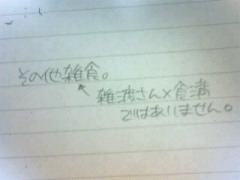 その他雑食。
雑渡さん×食満
ではありません。